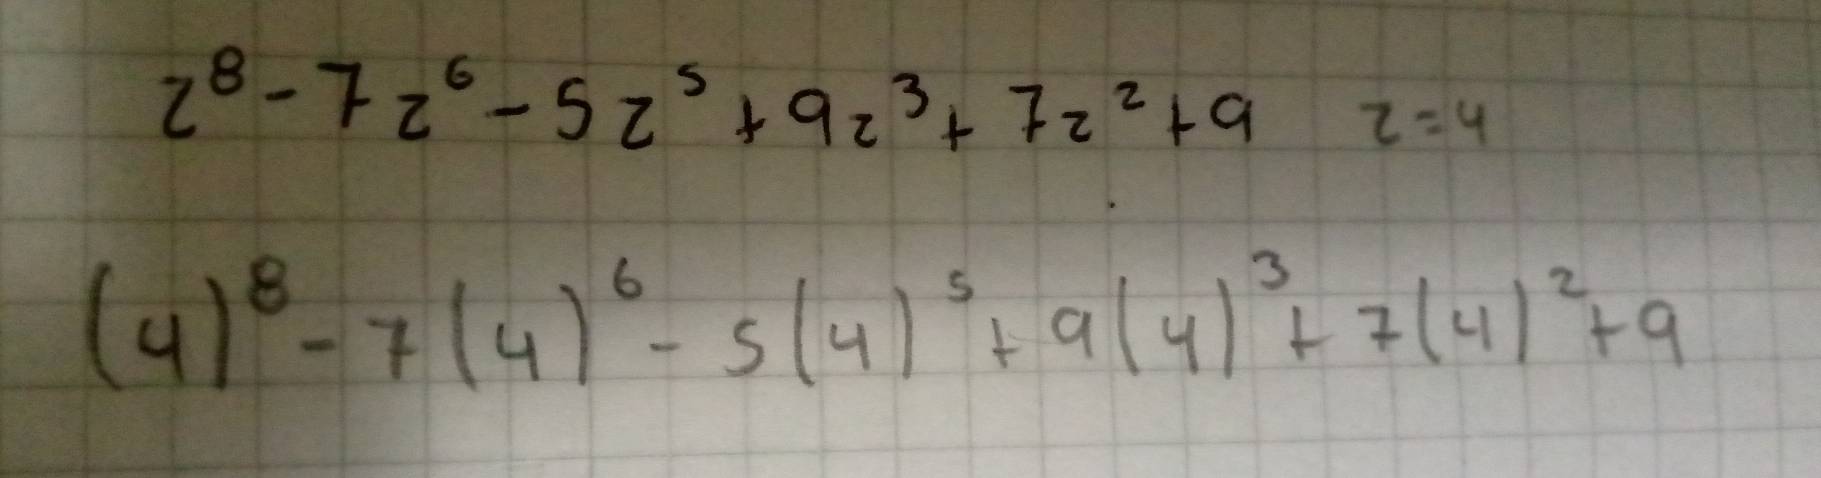 z⁸ - 7z⁶ - 5z⁵ + 9z³ + 7z² + 9 z = 4
(4)⁸ - 7(4)⁶ - 5(4)⁵ + 9(4)³ + 7(4)² + 9